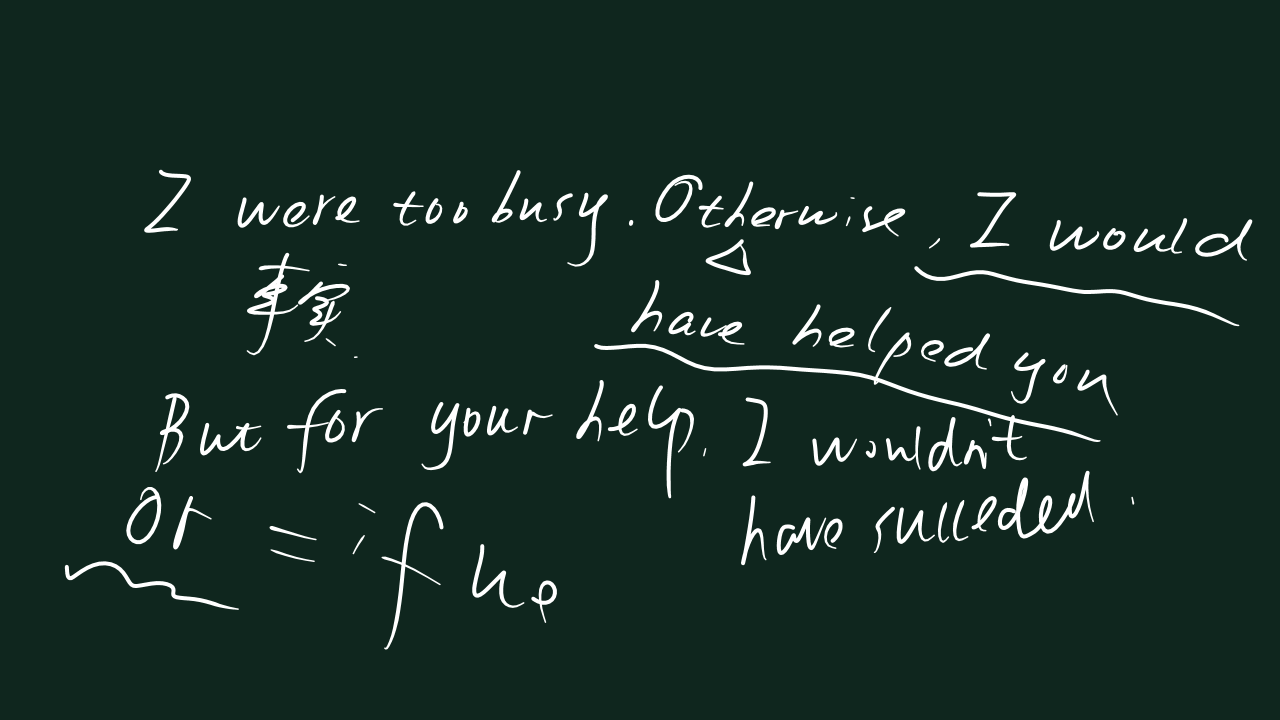 I were too busy. Otherwise, I would
事实
have helped you
But for your help, I wouldn't
have succeded.
or = if